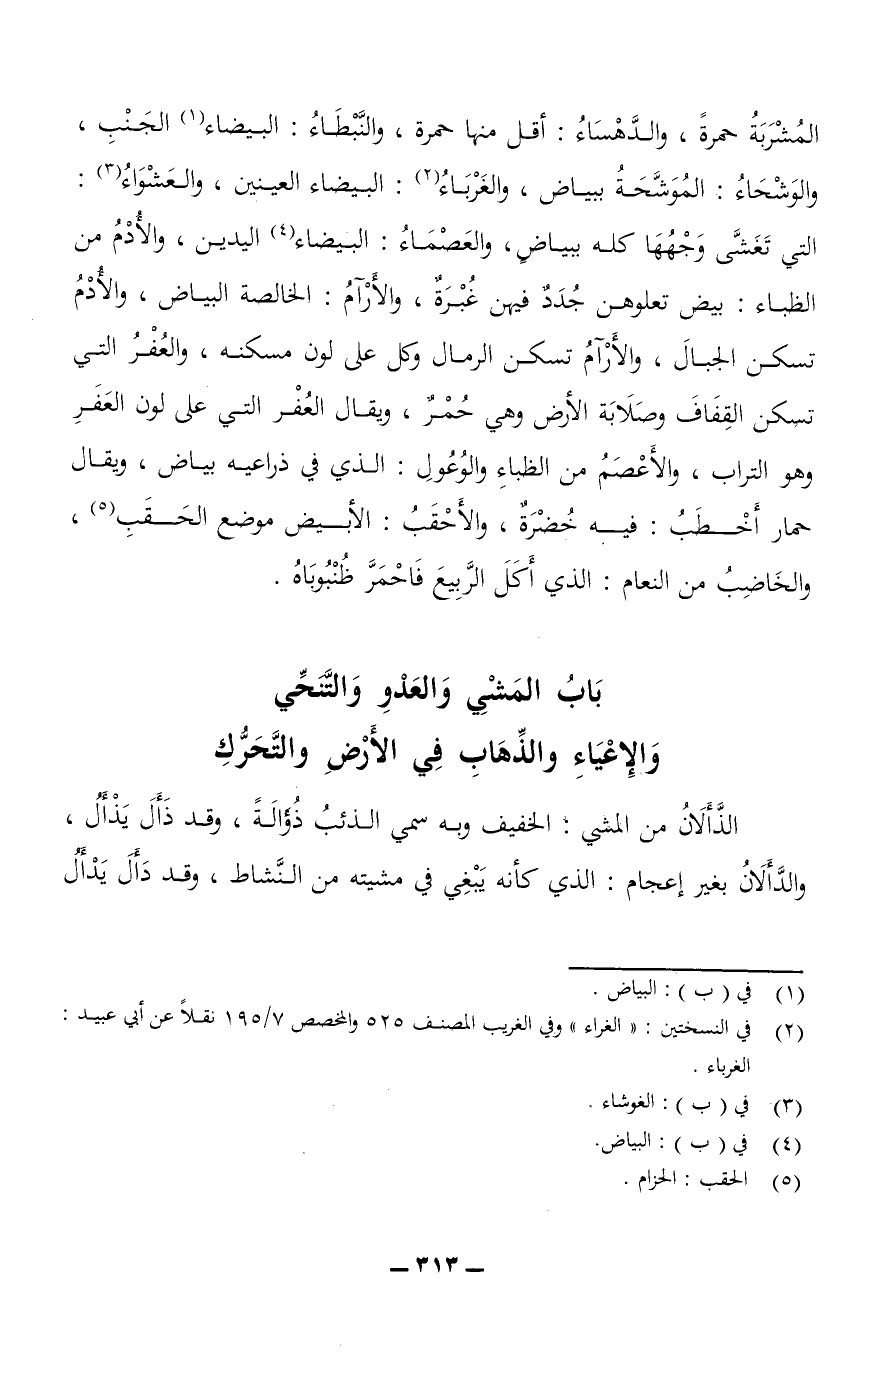 المُشْرَبَةُ حمرةً ، والدَّهْسَاءُ : أقل منها حمرة ، والنَّبْطَاءُ : البيضاء(١) الجَنْبِ ،
والوَشْحَاءُ : المُوَشَّحَةُ ببياض ، والغَرْبَاءُ(٢) : البيضاء العينين ، والعَشْوَاءُ(٣) :
التي تَغَشَّى وَجْهُهَا كله ببياضٍ، والعَصْمَاءُ : البيضاء(٤) اليدين ، والأُدْمُ من
الظباء : بيض تعلوهن جُدَدٌ فيهن غُبْرَةٌ ، والأَرْآمُ : الخالصة البياض ، والأُدْمُ
تسكن الجبالَ ، والأَرْآمُ تسكن الرمال وكل على لون مسكنه ، والعُفْرُ التي
تسكن القِفَافَ وصَلَابَة الأرض وهي حُمْرٌ ، ويقال العُفْر التي على لون العَفَرِ
وهو التراب ، والأَعْصَمُ من الظباءِ والوُعُولِ : الذي في ذراعيه بياض ، ويقال
حمار أَخْطَبُ : فيه خُضْرَةٌ ، والأَحْقَبُ : الأبيض موضع الحَقَبِ(٥) ،
والخَاضِبُ من النعام : الذي أَكَلَ الرَّبِيعَ فَاحْمَرَّ ظُنْبُوبَاهُ .
بَابُ المَشْيِ وَالعَدْوِ وَالتَّنَحِّي
وَالإِعْيَاءِ والذِّهَابِ فِي الأَرْضِ والتَّحَرُّكِ
الذَّأَلَانُ من المشي : الخفيف وبه سمي الذئبُ ذُؤَالَةً ، وقد ذَأَلَ يَذْأَلُ ،
والدَّأَلَانُ بغير إعجام : الذي كأنه يَبْغِي في مشيته من النَّشاط ، وقد دَأَلَ يَدْأَلُ
(١) في ( ب ) : البياض .
(٢) في النسختين : « الغراء » وفي الغريب المصنف ٥٢٥ والمخصص ١٩٥/٧ نقلاً عن أبي عبيد :
الغرباء .
(٣) في ( ب ) : الغوشاء .
(٤) في ( ب ) : البياض.
(٥) الحقب : الحزام .
ــ ٣١٣ ــ